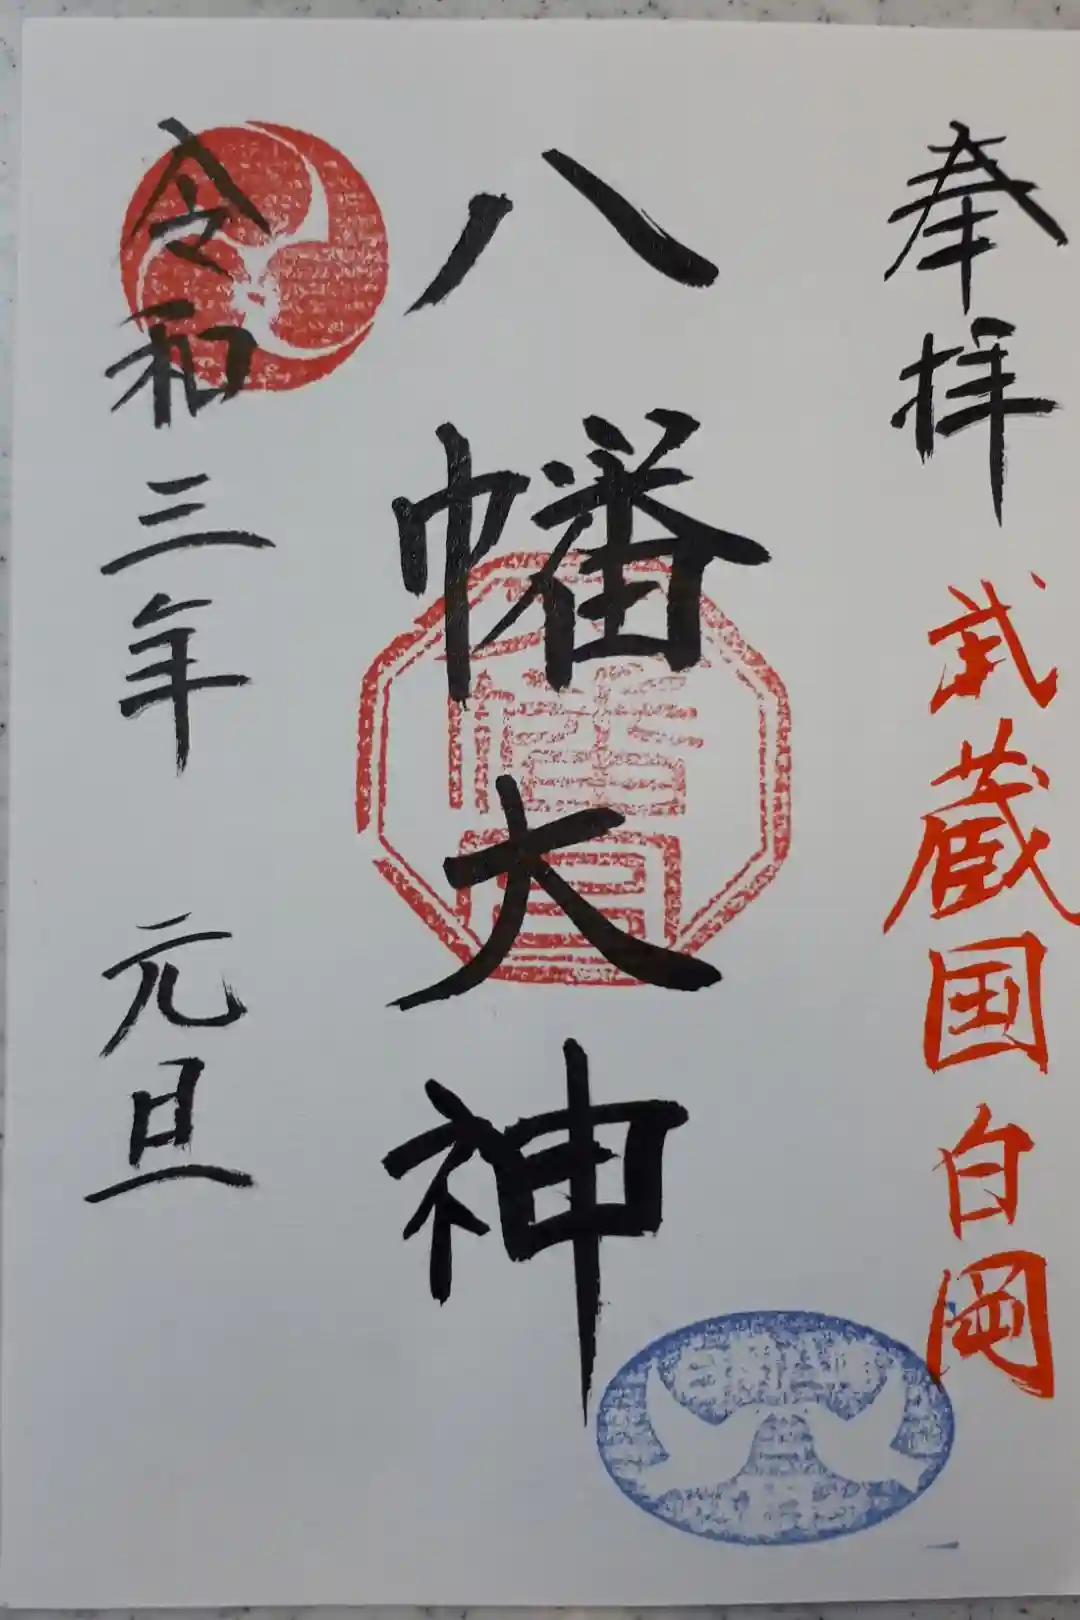 奉拝
武蔵国白岡
八幡大神
令和三年 元旦
白岡八幡